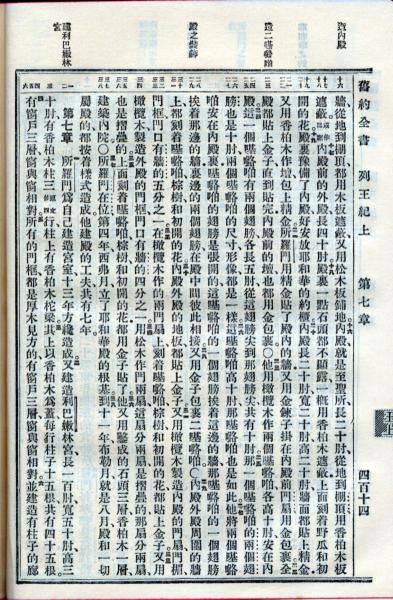 造內殿
造二嘰嚕咟
殿之裝飾
建利巴嫩林宮
舊約全書 列王紀上 第七章 四百十四
牆從地到棚頂都用木板遮蔽又用松木板鋪地內殿就是至聖所長二十肘從地到棚頂用香柏木板
遮蔽內殿前的外殿長四十肘殿裏一點石頭都不顯露一概用香柏木遮蔽上面刻着野瓜和初
開的花殿裏豫備了內殿好安放耶和華的約櫃內殿長二十肘寬二十肘高二十肘牆面都貼上精金
又用香柏木作壇包上精金所羅門用精金貼了殿內的牆又用金鍊子掛在內殿前門扇用金包裹全
殿都貼上金子直到貼完內殿前的壇也都用金包裹○他用橄欖木作兩個嘰嚕咟各高十肘安在內
殿這一個嘰嚕咟有兩個翅膀各長五肘從這翅膀尖到那翅膀尖共有十肘那一個嘰嚕咟的兩個翅
膀也是十肘兩個嘰嚕咟的尺寸形像都是一樣這嘰嚕咟高十肘那嘰嚕咟也是如此他將兩個嘰嚕
咟安在內殿裏嘰嚕咟的翅膀是張開的這嘰嚕咟的一個翅膀挨着這邊的牆那嘰嚕咟的一個翅膀
挨着那邊的牆裏邊的兩個翅膀在殿中間彼此相接又用金子包裹二嘰嚕咟○內殿外殿周圍的牆
上都刻着嘰嚕咟棕樹和初開的花內殿外殿的地板都貼上金子又用橄欖木製造內殿的門扇門楣
門框門口有牆的五分之一在橄欖木作的兩門扇上刻着嘰嚕咟棕樹和初開的花都貼上金子又用
橄欖木製造外殿的門框門口有牆的四分之一用松木作門兩扇這扇分兩扇是摺疊的那扇分兩扇
也是摺疊的上面刻着嘰嚕咟棕樹和初開的花都用金子貼了他又用鑿成的石頭三層香柏木一層
建築內院○所羅門在位第四年西弗月立了耶和華殿的根基到十一年布勒月就是八月殿和一切
屬殿的都按着樣式造成他建殿的工夫共有七年
第七章 所羅門爲自己建造宮室十三年方纔造成又建造利巴嫩林宮長一百肘寬五十肘高三
十肘有香柏木柱三行柱上有香柏木柁梁其上以香柏木爲蓋每行柱子十五根共有四十五根
有窗戶三層窗與窗相對所有的門框都是厚木見方的有窗戶三層窗與窗相對並建造有柱子的廊